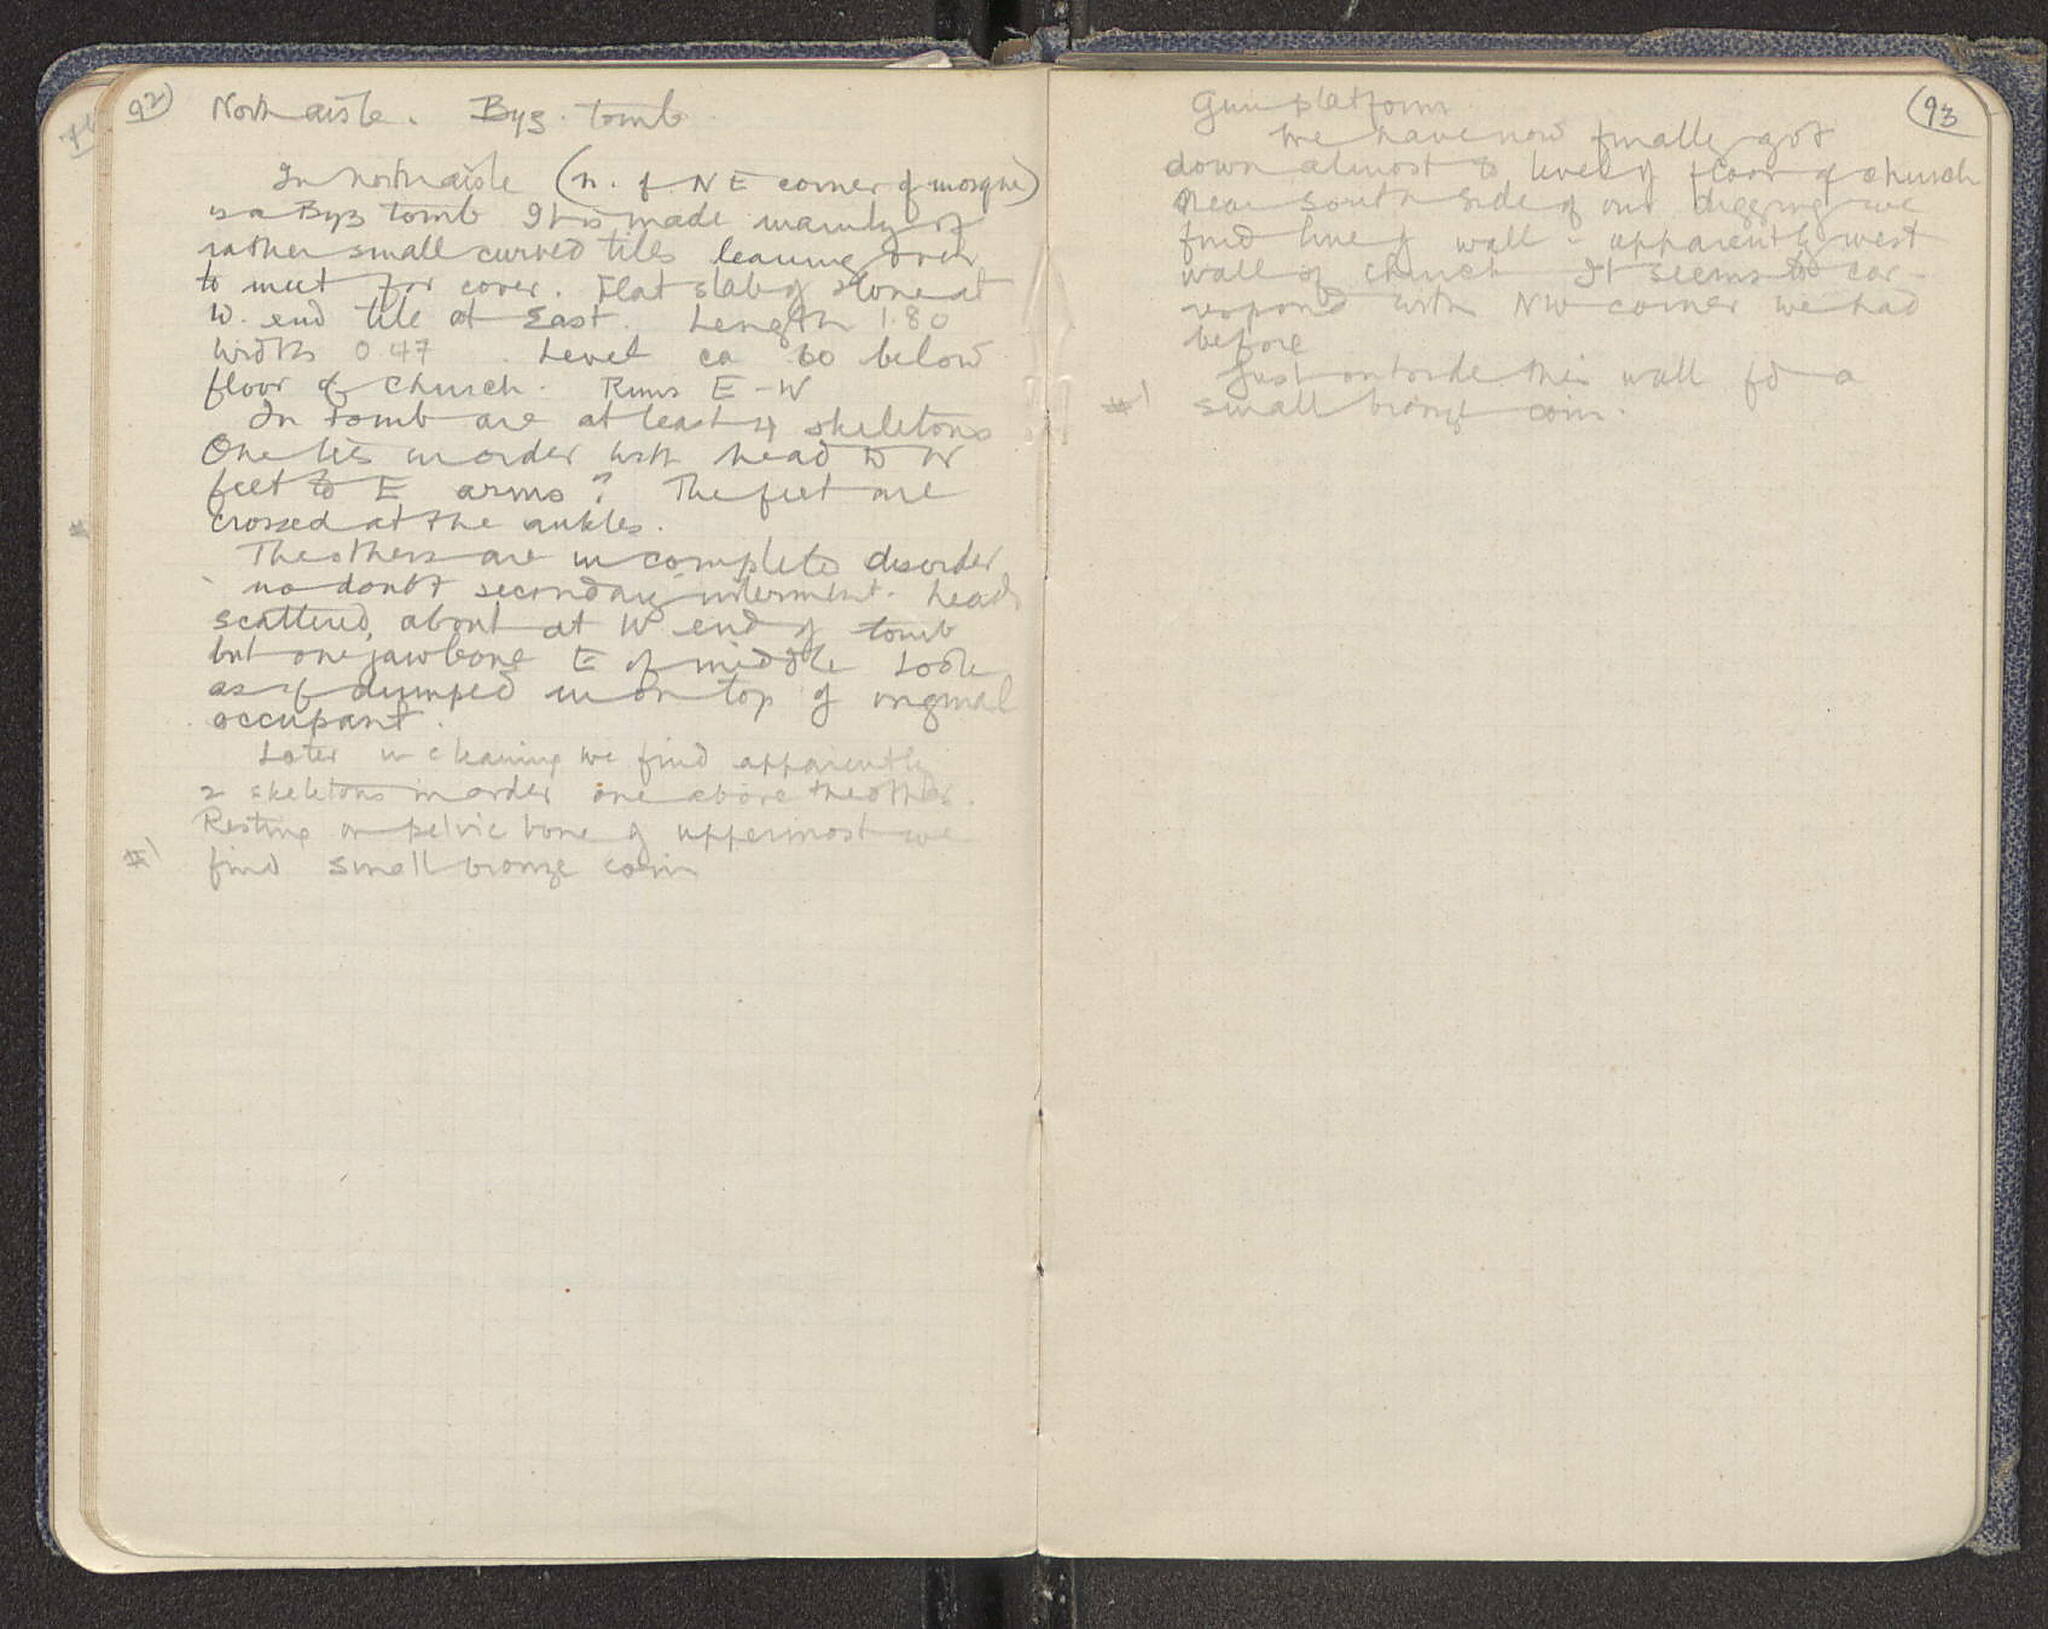 92
North aisle. Byz. tomb.
In north aisle (n. of NE corner of mosque)
is a Byz tomb It is made mainly of
rather small curved tiles leaning over
to meet for cover. Flat slab of stone at
W. end tile at East. Length 1.80
width 0.47. Level ca 60 below
floor of church. Runs E-W
In tomb are at least 4 skeletons
One lies in order with head to W
feet to E arms? The feet are
crossed at the ankles.
The others are in complete disorder
- no doubt secondary interment. heads
scattered about at W end of tomb
but one jawbone E of middle Look
as if dumped in on top of original
occupant.
Later in cleaning we find apparently
2 skeletons in order one above the other.
Resting on pelvic bone of uppermost we
#1 find small bronze coin
93
Gun platform
We have now finally got
down almost to level of floor of church
Near south side of our digging we
find line of wall - apparently west
wall of church It seems to cor-
respond with NW corner we had
before
Just outside this wall fd a
#1 small bronze coin.